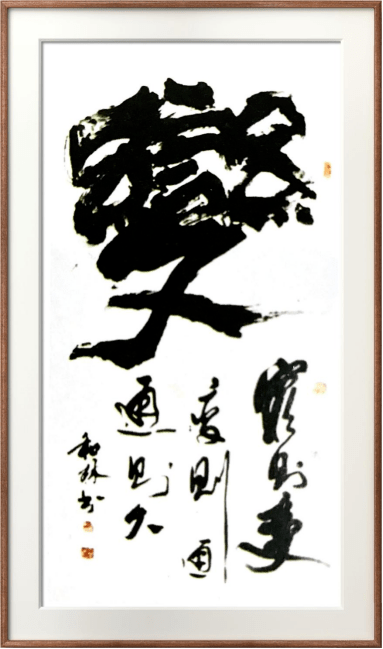 變
窮則變
變則通
通則久
和林书